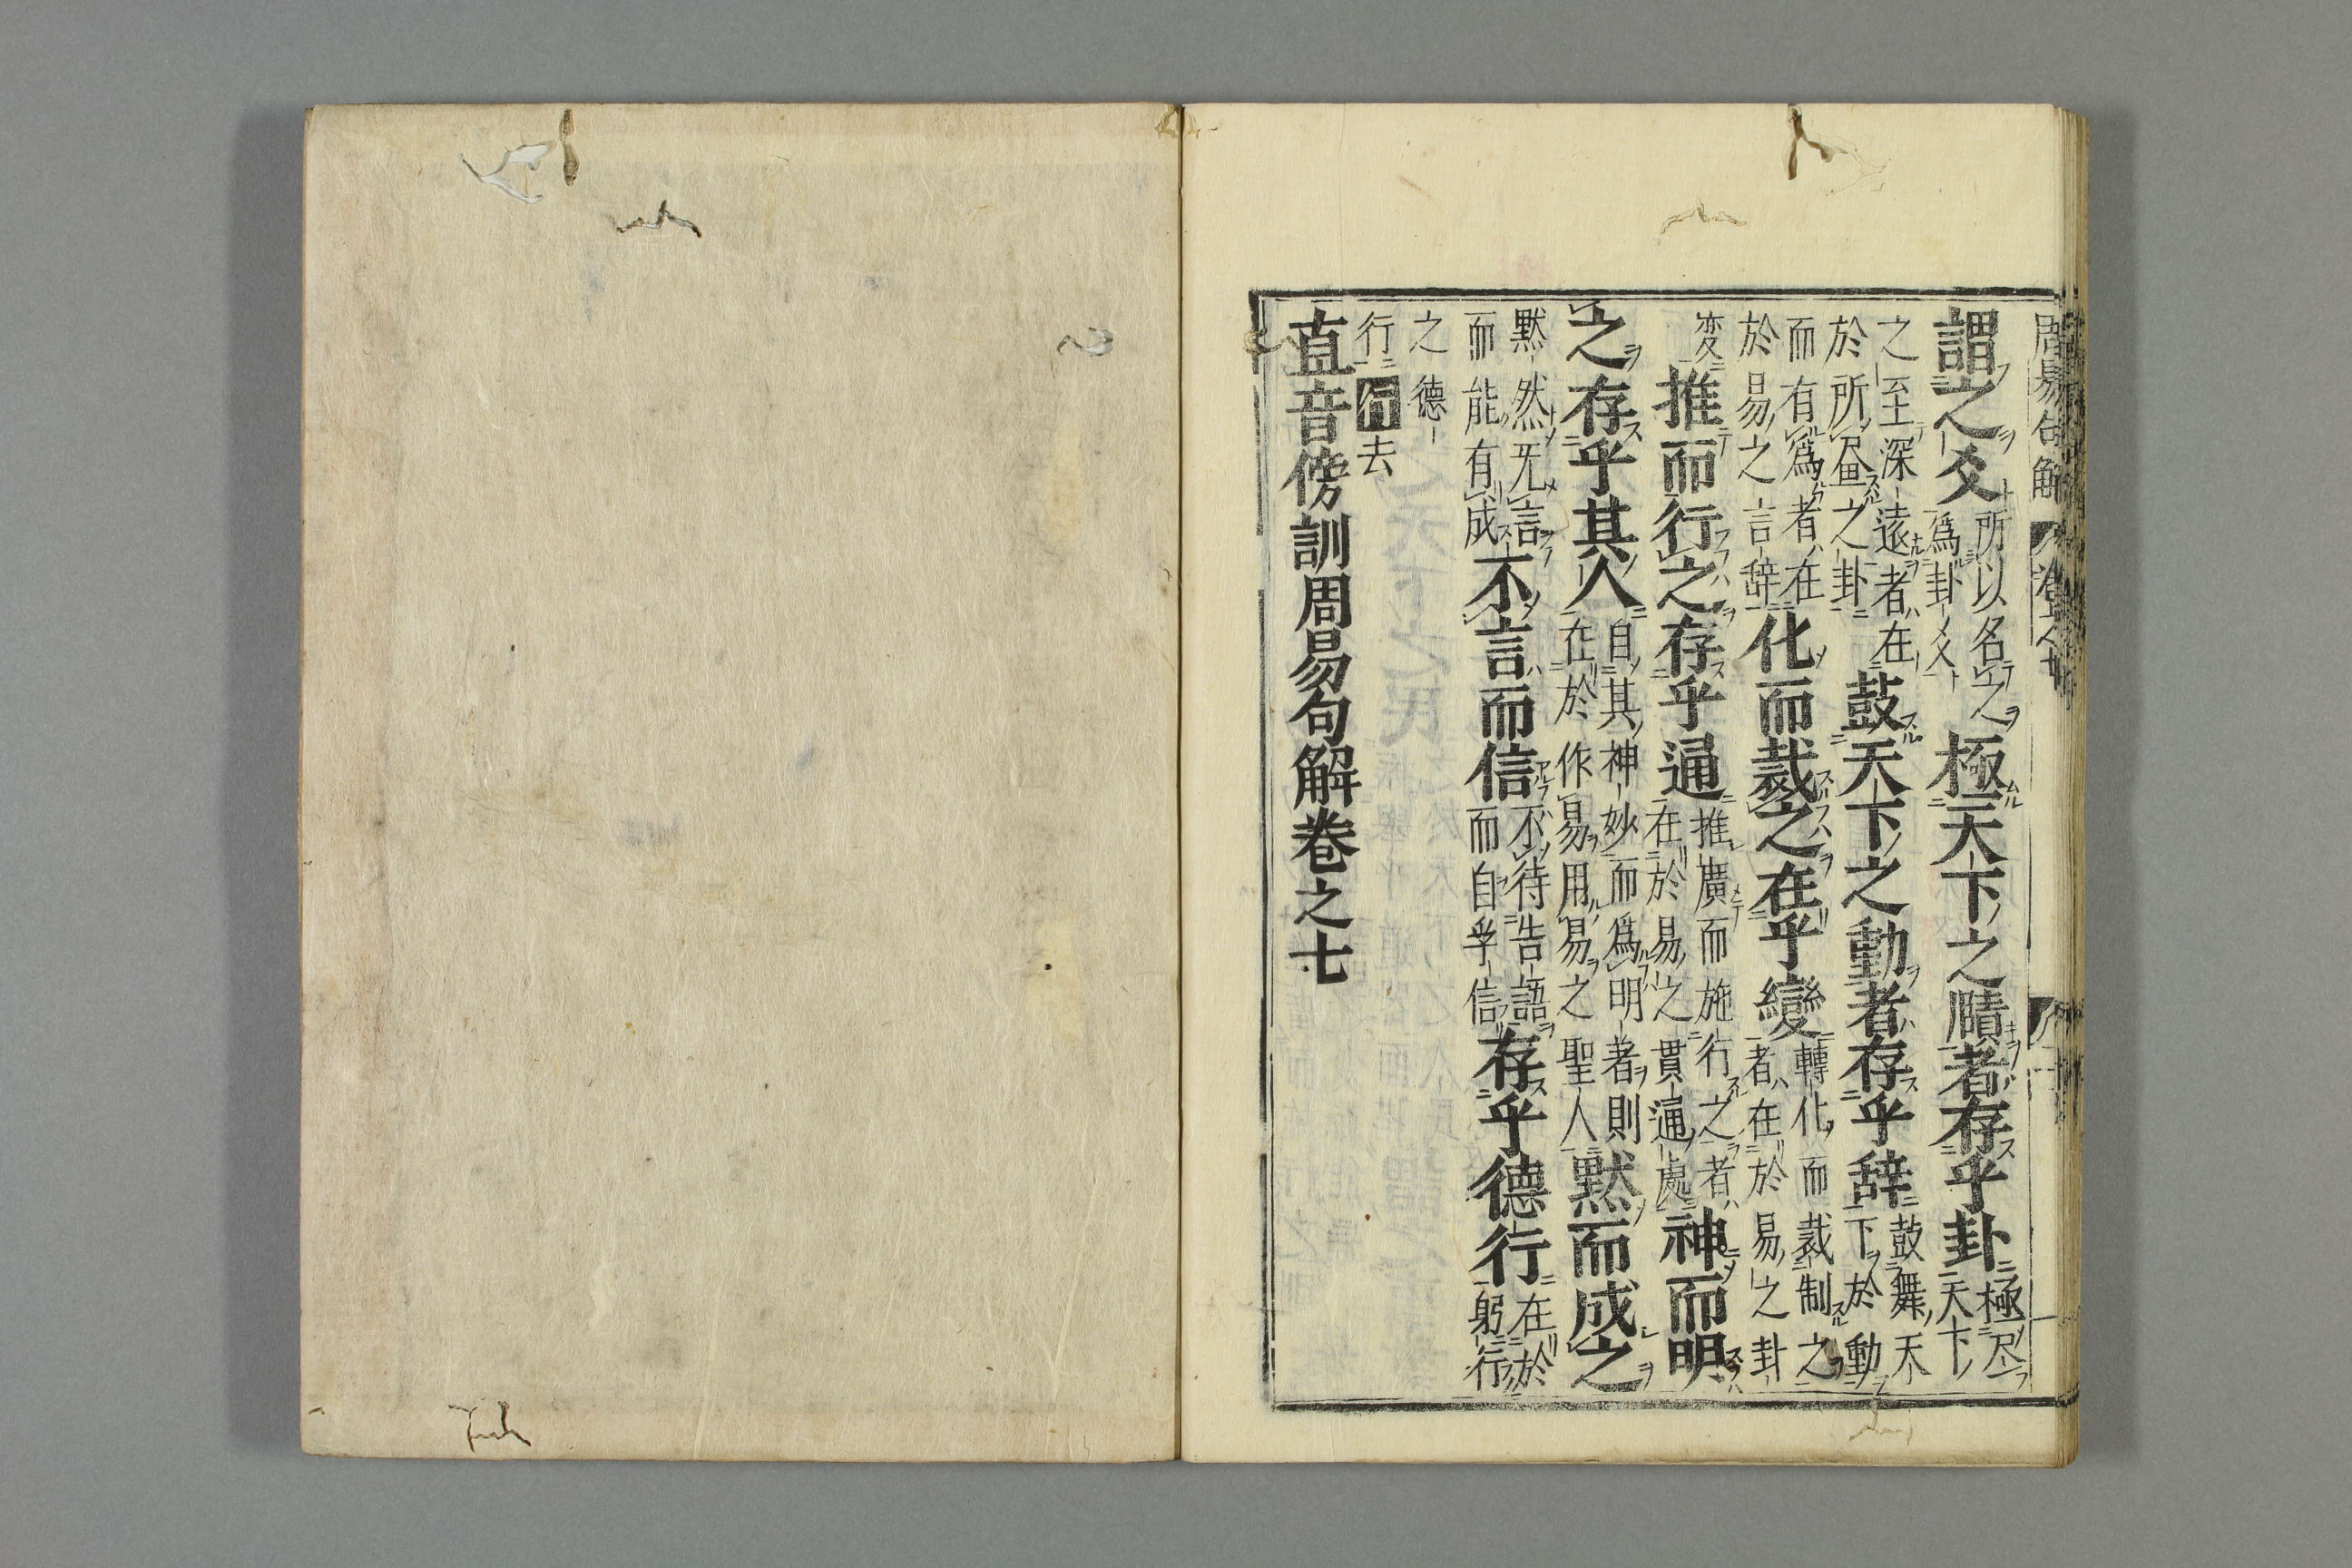 周易句解
謂之爻所以名之爲卦爻極天下之賾者存乎卦極尽天下
之至深遠者在於所尽之卦鼓天下之動者存乎辞鼓舞天下於動
而有爲者在於易之言辞化而裁之在乎變轉化而裁制之者在於易之卦
変推而行之存乎通推廣而施行之者在於易之貫通處神而明
之存乎其人自其神妙而爲明者則在於作易用易之聖人默而成之
黙然无言而能有成不言而信不待告語而自孚信存乎德行在於躬行
之德
行行去
直音傍訓周易句解卷之七